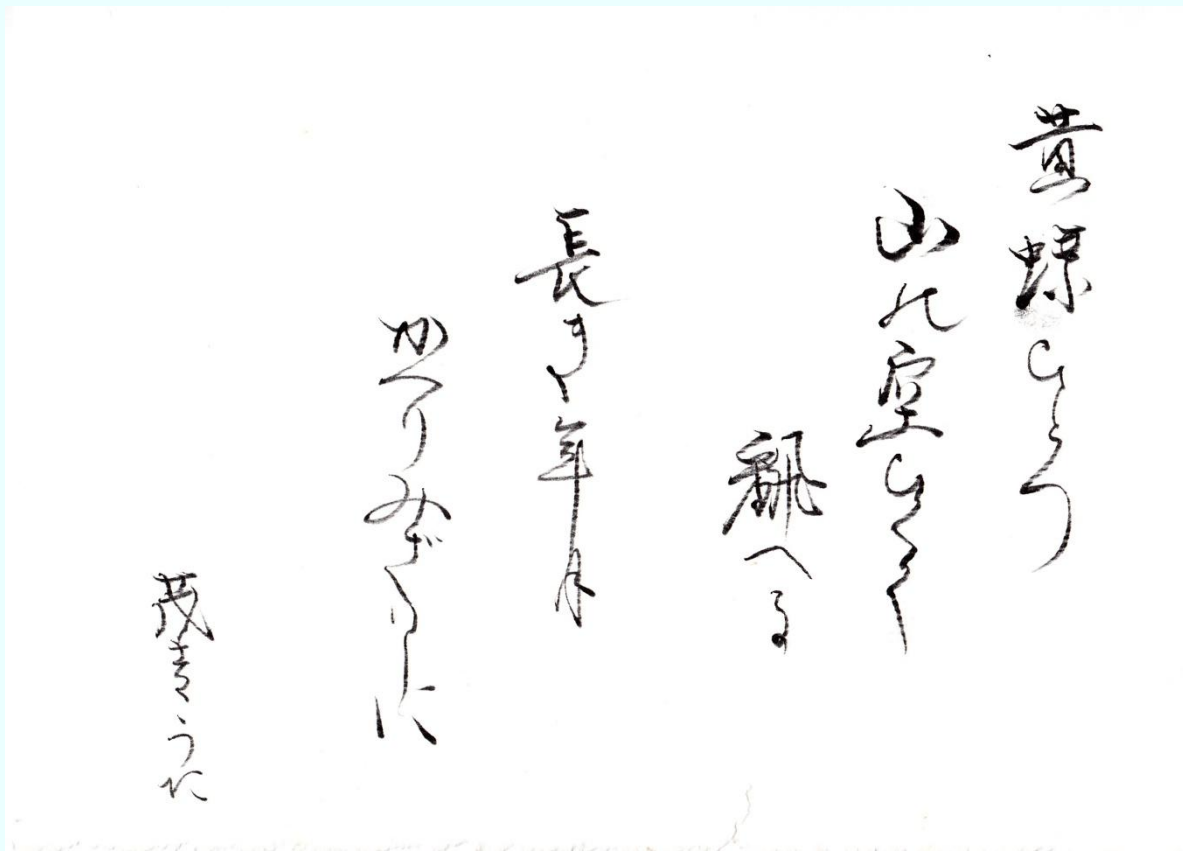 黄蝶ひとつ
山の空ひくく
翻へる
長き年月
かへりみざりしに
茂吉うた